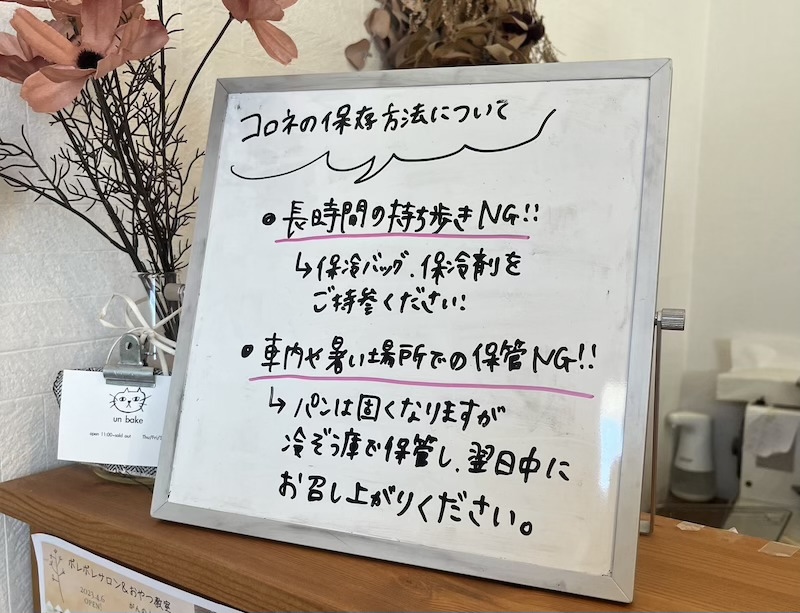 コロネの保存方法について
• 長時間の持ち歩きNG!!
↳保冷バッグ、保冷剤を
ご持参ください!
• 車内や暑い場所での保管NG!!
↳パンは固くなりますが
冷ぞう庫で保管し、翌日中に
お召し上がりください。
un bake
open 11:00~sold out
ポレポレサロン&おやつ教室
2023.4.6
OPEN!